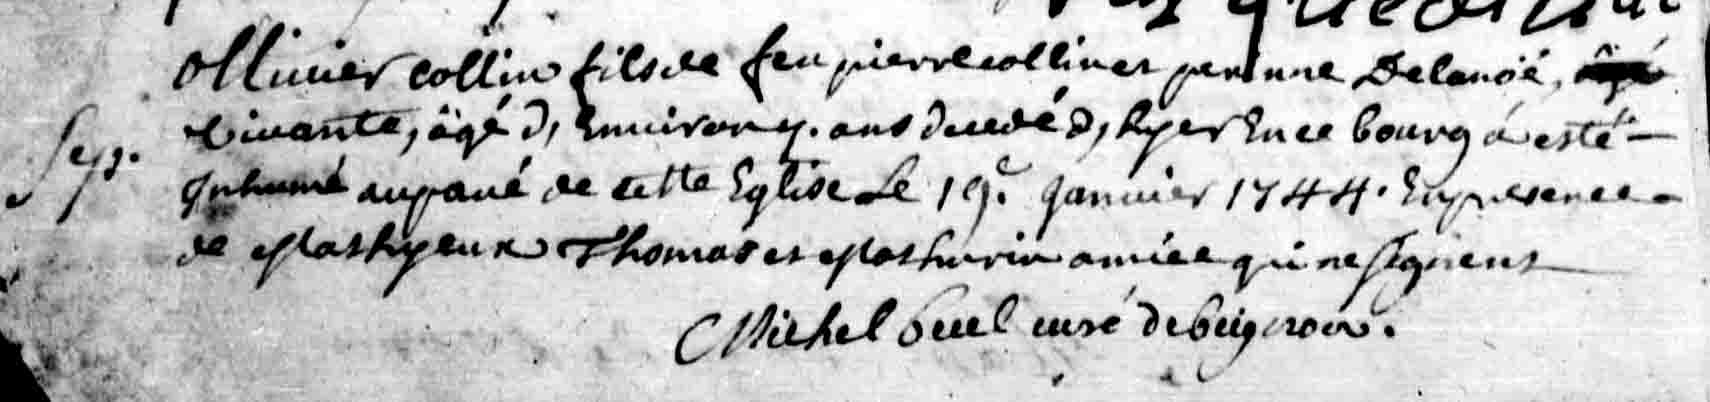 Ollivier collin fils de feu pierre collin et perinne Delanöé,
vivante, âgé d'Environ 7. ans decedé d'hyer En ce bourg á esté
Sep.
Inhumé au pavé de cette Eglise Le 19.e Janvier 1744. En presence
de Mathyeux Thomas et Mathurin amice qui ne signent
Michel curé de